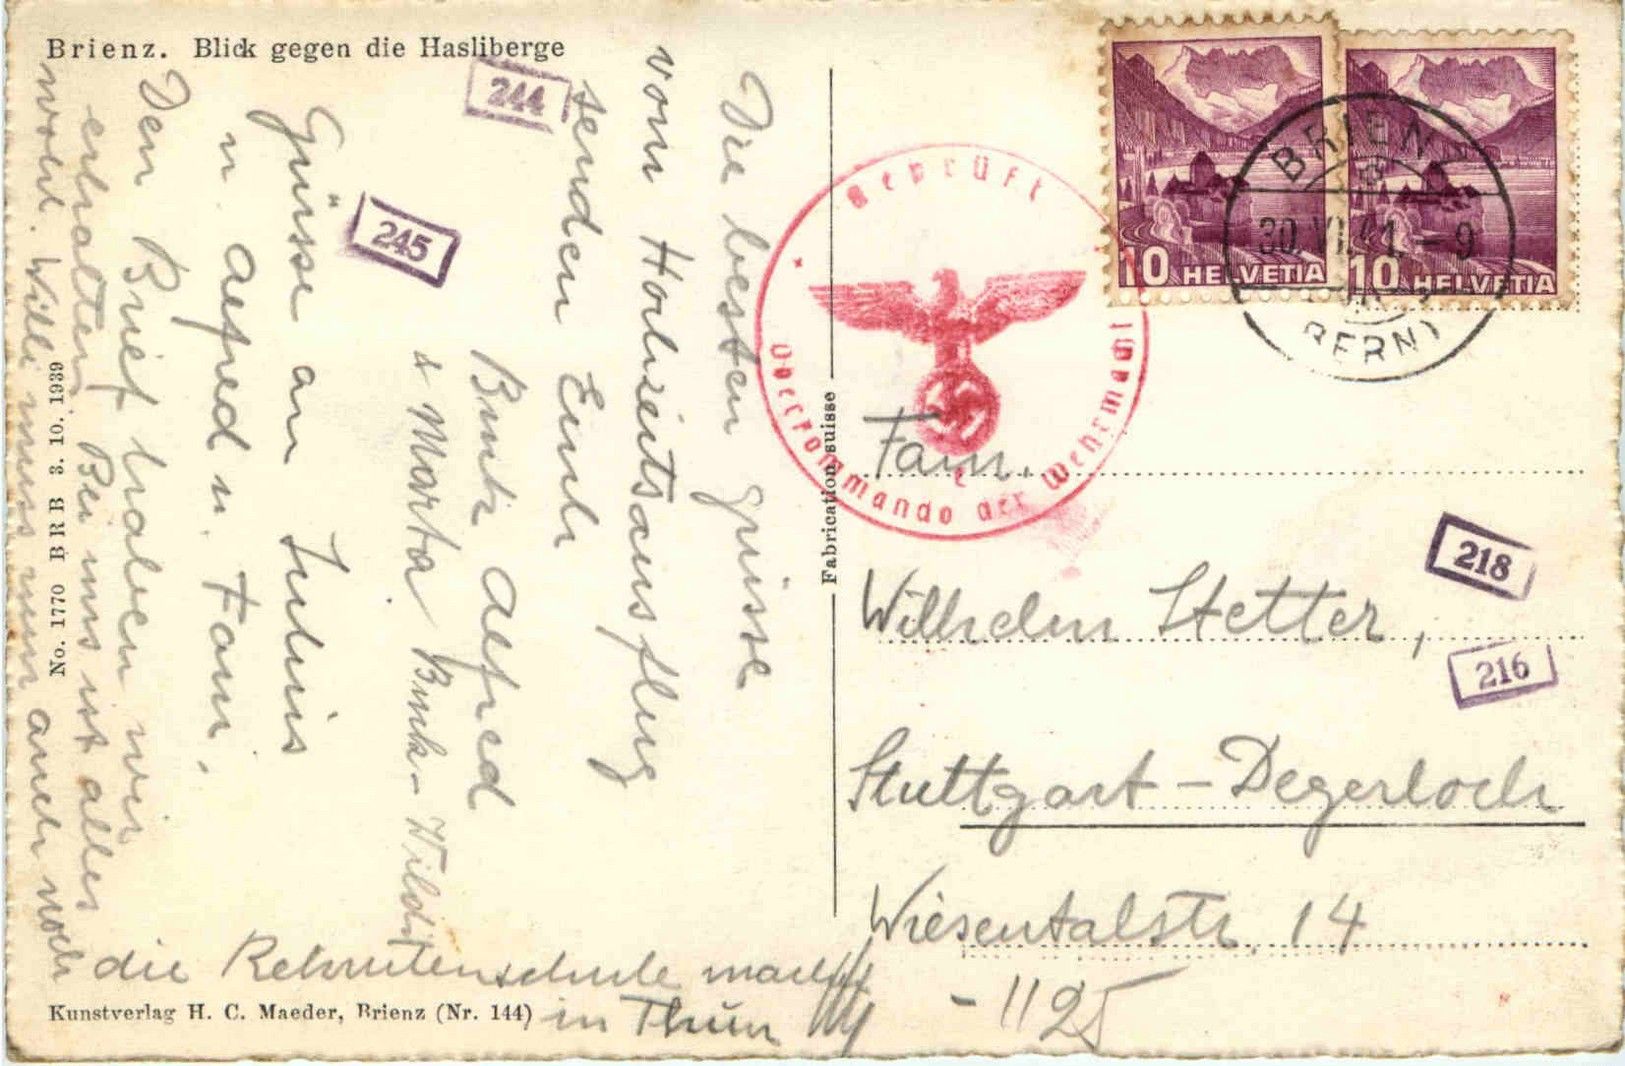 Brienz. Blick gegen die Hasliberge
244
245
Die besten Grüsse
vom Hohzeitsausflug
senden Euch
Alfred
& Marta
Grüsse an Julius
u. Alfred u. Fam.
Den Brief haben wir
erhalten. Bei uns ist alles
wohl. Willi muss nun auch noch
die Rekrutenschule machen
in Thun
No. 1770 BRB 3. 10. 1939
Kunstverlag H. C. Maeder, Brienz (Nr. 144)
Fabrication suisse
10 HELVETIA
10 HELVETIA
BRIENZ
30.VI.41.-9
(BERN)
Geprüft
Oberkommando der Wehrmacht
e
Fam.
Wilhelm Stetter,
Stuttgart-Degerloch
Wiesentalstr. 14
218
216
-1125